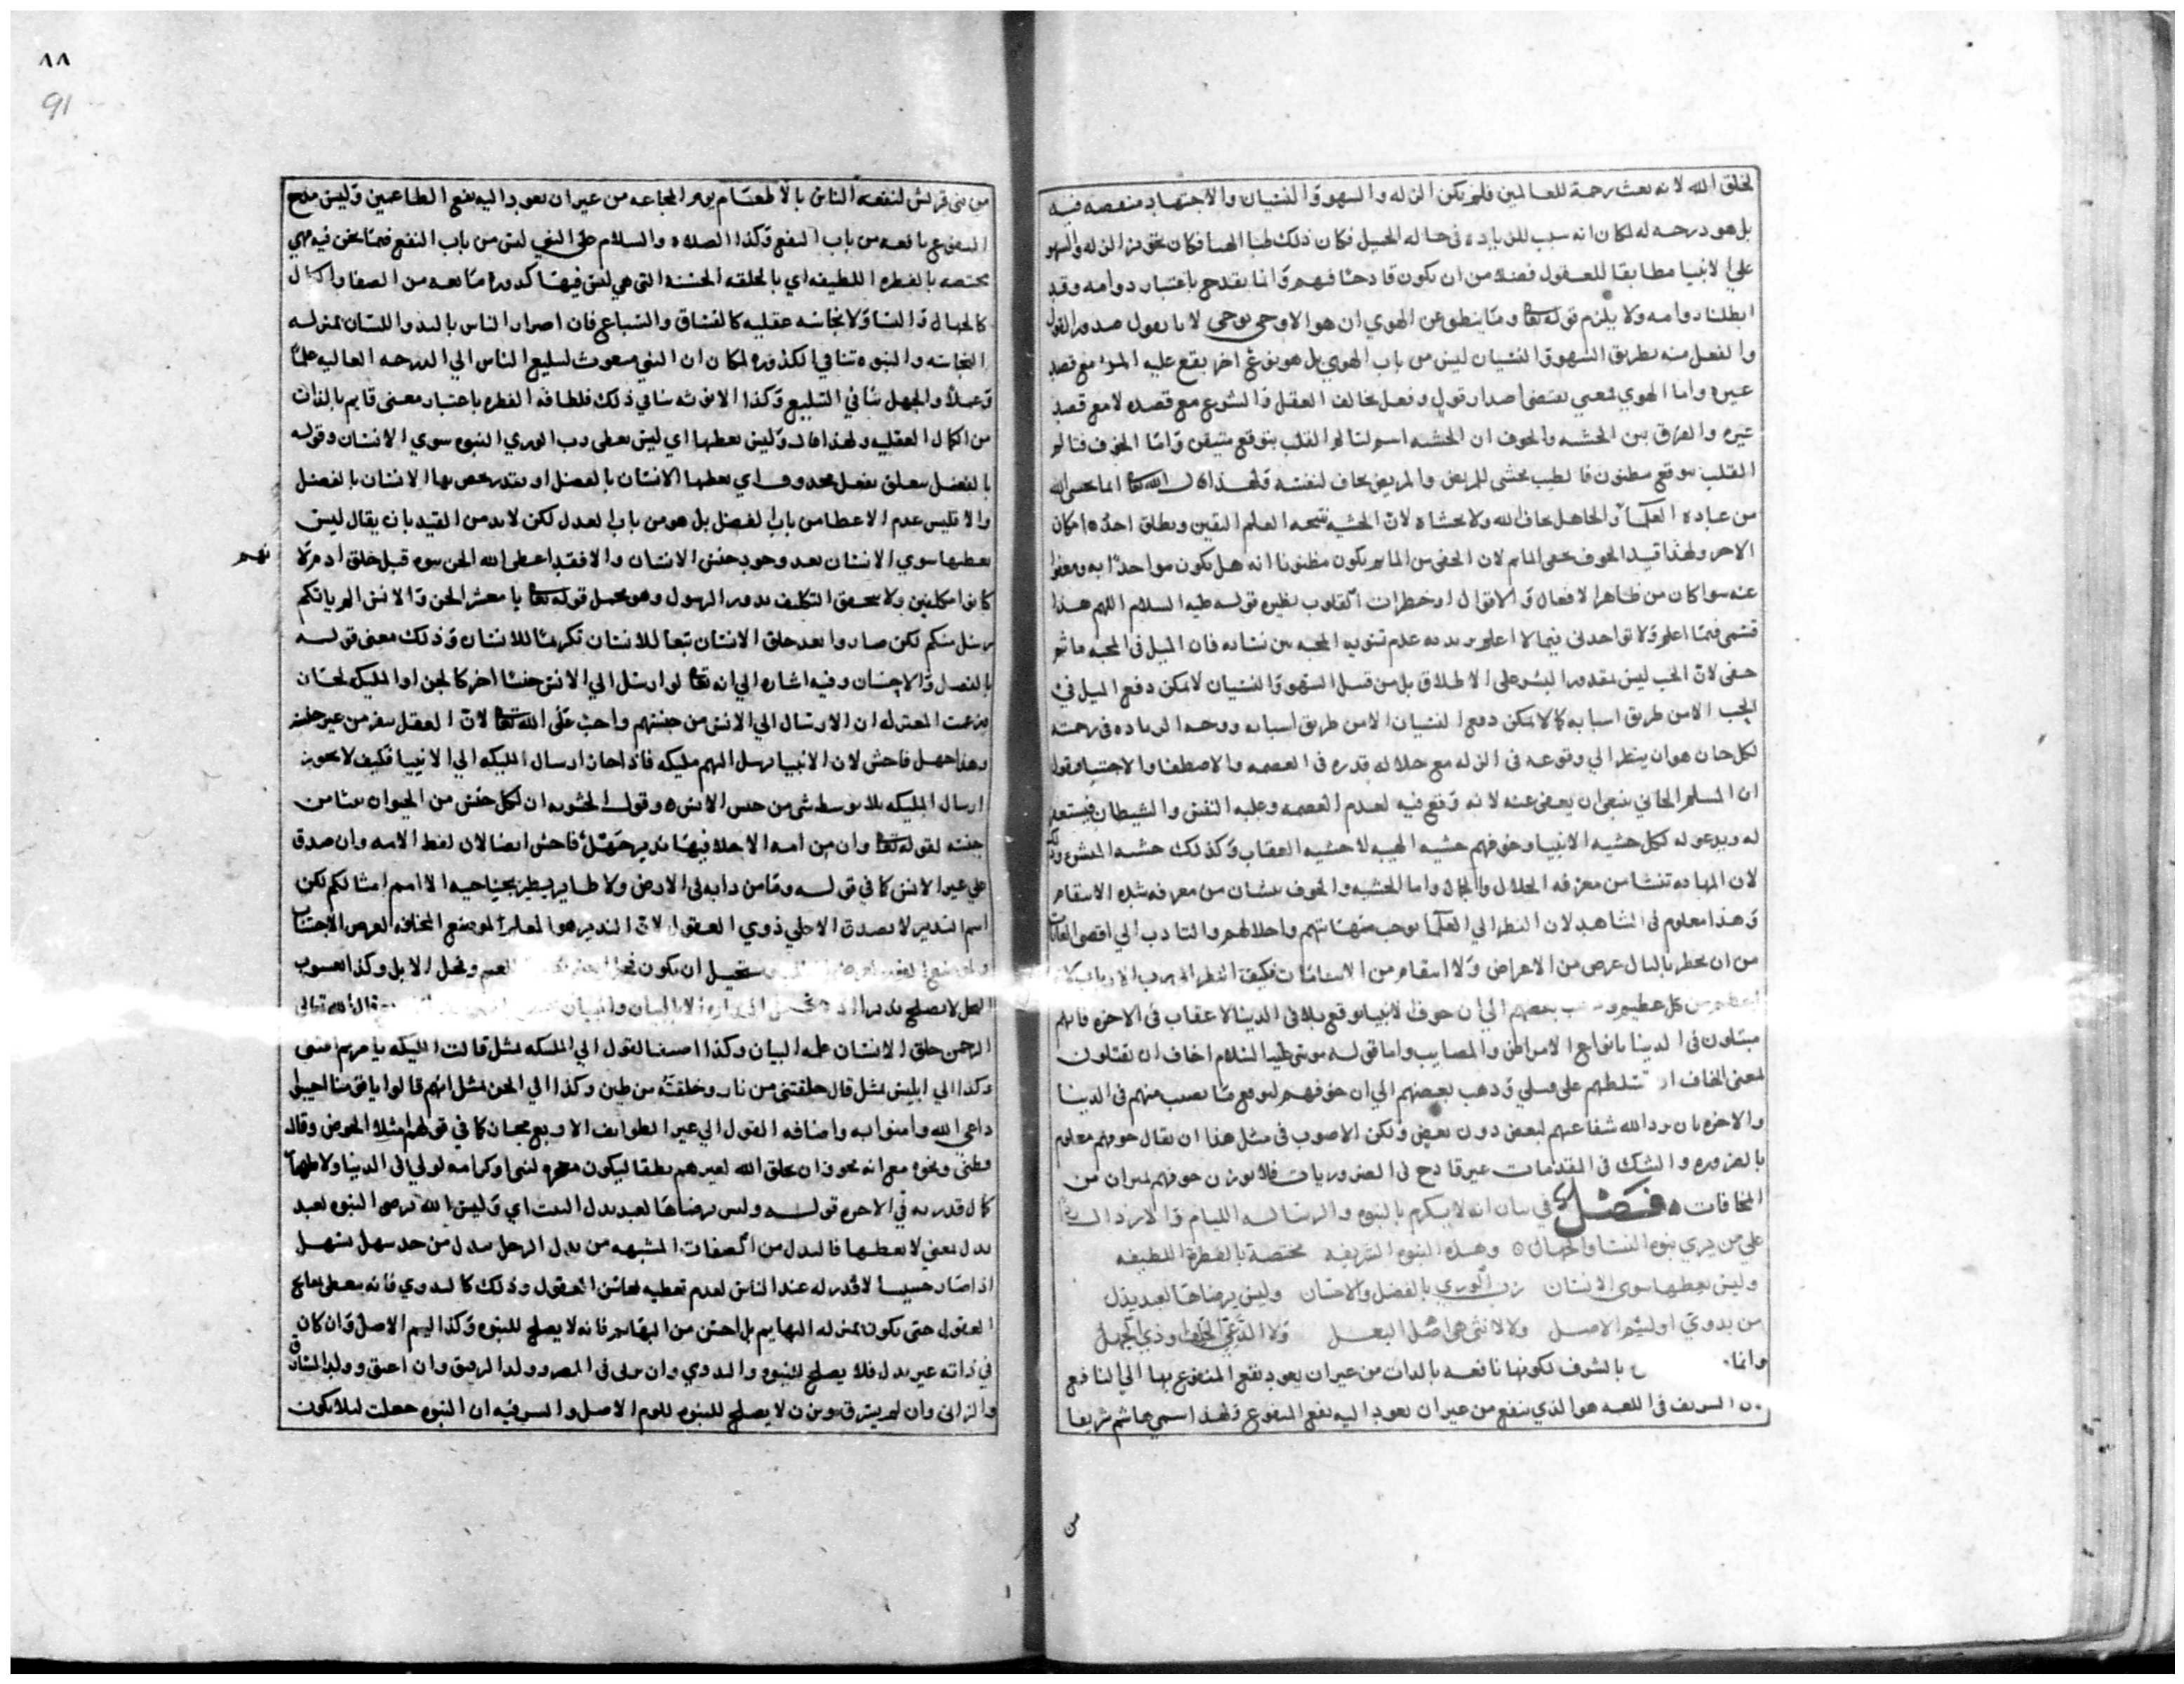 لخلق الله لانه بعث رحمة للعالمين فلم يكن الزله والسهو والنسيان والاجتهاد منقصه فيه
بل هو درجه له لمكان انه سبب للزياده فى حاله الجميل فكان ذلك
على الانبيا مطابقا للعقول فضلا من ان يكون قادحا فيهم وانما يقدح باعتبار دوامه وقد
ابطلنا دوامه ولا يلزم قوله تعالى وما ينطق عن الهوي ان هو الا وحي يوحى لانا نقول صدور القول
والفعل منه بطريق السهو والنسيان ليس من باب الهوي بل هو نوع اخر يقع عليه المرء مع قصد
غيره واما الهوي فمعنى يقتضى اصدار قول وفعل يخالف العقل والشرع مع قصده لا مع قصد
غيره والفرق بين الخشيه والخوف ان الخشيه اسم لتالم القلب بتوقع متيقن واما الخوف فتالم
القلب بتوقع مظنون فالطبيب يخشى للمريض والمريض يخاف لنفسه ولهذا قال الله تعالى انما يخشى الله
من عباده العلما والجاهل يخاف الله ولا يخشاه لان الخشيه نتيجه العلم اليقين ويطلق احده مكان
الاخر ولهذا قيد الخوف
عنه سوا كان من ظاهر الافعال والاقوال او خطرات القلوب نظيره قوله عليه السلام اللهم هذا
قسمى فيما املك ولا تواخذنى فيما لا املك يريد به عدم تسويه المحبه بين نسائه فان الميل فى المحبه
لان الحب ليس بمقدور البشر على الاطلاق بل من قبيل السهو والنسيان لا يمكن دفع الميل فى
الحب الا من طريق اسبابه كما لا يمكن دفع النسيان الا من طريق اسبابه ووجه الزياده فى رحمته
لكل جان هو ان ينظر الي وقوعه فى الزله مع جلاله قدره فى العصمه والاصطفا والاجتبا
ان المسلم الجاني ينبغى ان يعفى عنه لانه وقع فيه لعدم العصمه وغلبه النفس والشيطان فيستغفر
له ويدعو له لكل خشيه الانبيا وخوفهم خشيه الهيبه لا خشيه العقاب وكذلك خشيه
لان المهابه تنشا من معرفه الجلال والجمال واما الخشيه والخوف ينشان من معرفه شده الانتقام
وهذا معلوم فى الشاهد لان النظر الي العلما يوجب مهابتهم واجلالهم والتادب الي اقصى الغايات
من ان يخطر بالبال غرض من الاعراض ولا انتقام من الانتقامات فكيف النظر الي رب الارباب
من كل عظيم بعضهم الي ان خوف الانبيا توقع بلا فى الدنيا لا عقاب فى الاخره فانهم
مبتلون فى الدنيا بانواع الامراض والمصايب واما قوله موسى عليه السلام اخاف ان يقتلون
لمعنى اخاف ان تسلطهم على قتلي وذهب بعضهم الي ان خوفهم لتوقع ما يصيب منهم فى الدنيا
والاخره بان يرد الله شفاعتهم لبعض دون بعض ولكن الاصوب فى مثل هذا ان يقال خوفهم معلوم
بالضروره والشك فى المقدمات غير قادح فى الضروريات فلا يوزن خوفهم بميزان من
المخافات فصل في بيان انه لا يكرم بالنبوه والرساله الليام والارذال
علي من يري نبوه النسا والجهال وهذه النبوه الشريفه مختصة بالفطرة اللطيفه
وليس يعطيها سوى الانسان رب الوري بالفضل والاحسان وليس يرضاها لعبد يذل
من بدوي او لئيم الاصل ولا لانثى هي اهل البعل ولا الذي وذي الجهل
وانما بالشرف لكونها نافعه بالذات من غير ان يعود نفع المنفوع بها الي النافع
الشريف فى اللغه هو الذي ينفع من غير ان يعود اليه نفع المنفوع ولهذا اسمي هاشم شريفا
من
٨٨
91
من بنى قريش لنفعه الناس بالاطعام يوم المجاعه من غير ان يعود اليه نفع الطاعمين وليس مدح
المنفوع نافعه من باب النفع وكذا الصلاه والسلام على النبي ليس من باب النفع فيما نحن فيه فهي
مختصه بالفطره اللطيفه اي بالخلقه الحسنه التي هي ليس فيها كدوره مانعه من الصفا والكمال
كالجهال والنسا ولا نجاسه عقليه كالفساق والسباع فان اصرار الناس باليد واللسان بمنزله
النجاسه والنبوه تنافي الكدوره لمكان ان النبي مبعوث لتبليغ الناس الي الدرجه العاليه علما
وعملا والجهل ينافي التبليغ وكذا الانوثه تنافي ذلك فلطافه الفطره باعتبار معنى قايم بالذات
من الكمال العقليه ولهذا قال وليس يعطيها اي ليس يعطى رب الوري النبوه سوي الانسان وقوله
بالفضل متعلق بفعل محذوف اي يعطيها الانسان بالفضل او يقدر يخص بها الانسان بالفضل
والا فليس عدم الاعطا من باب الفضل بل هو من باب العدل لكن لا بد من القيد بان يقال ليس
يعطيها سوي الانسان بعد وجود جنس الانسان والا فقد اعطى الله الجن نبوه قبل خلق ادم
كانوا مكلفين ولا يتحقق التكليف بدون الرسول وهو محمل قوله تعالى يا معشر الجن والانس الم ياتكم
رسل منكم لكن صاروا بعد خلق الانسان تبعا للانسان تكريما للانسان وذلك معنى قوله
بالفضل والاحسان وفيه اشاره الي انه تعالى لو ارسل الي الانس جنسا اخر كالجن او المليكه لجاز
وزعمت المعتزله ان الارسال الي الانس من جنسهم واجب على الله تعالى لان العقل ينفر من غير جنسه
وهذا جهل فاحش لان الانبيا رسل اليهم مليكه فاذا جاز ارسال المليكه الي الانبيا فكيف لا يجوز
ارسال المليكه بلا توسط شى من جنس الانس وقول الحشويه ان لكل جنس من الحيوان نبيا من
جنسه لقوله تعالى وان من امه الا خلا فيها نذير جهل فاحش ايضا لان لفظ الامه وان صدق
على غير الانس كما في قوله وما من دابه فى الارض ولا طاير يطير بجناحيه الا امم امثالكم لكن
اسم النذير لا يصدق الا على ذوي العقول لان النذير هو المعلم
يستحيل ان يكون الغنم ونحل الابل وكذا يعسوب
النحل لا يصلح نذيرا الا بالبيان والبيان قال الله تعالى
الرحمن خلق الانسان علمه البيان وكذا اضفنا القول الي المليكه مثل قالت المليكه يا مريم اقنتى
وكذا الي ابليس مثل قال خلقتنى من نار وخلقته من طين وكذا الي الجن مثل انهم قالوا يا قومنا اجيبوا
داعي الله وامنوا به واضافه القول الي غير الطوايف الاربع مجاز كما في قولهم امتلا الحوض وقال
قطنى ونحوه مع انه يجوز ان يخلق الله لغيرهم نطقا ليكون معجزه لنبى او كرامه لولي فى الدنيا ولاظهار
كمال قدرته في الاخره قوله وليس يرضاها لعبد يذل البيت اي وليس الله يرضى النبوه لعبد
يذل يعني لا يعطيها
اذا صار خسيسا لا قدر له عند الناس لعدم تعظيه محاسن العقول وذلك كالبدوي فانه
العقول حتى يكون بمنزله البهايم بل اخس من البهايم فانه لا يصلح للنبوه وكذا ليم الاصل وان كان
في ذاته غير يذل فلا يصلح للنبوه والبدوي وان تربى فى المصر وولد الرقيق وان اعتق وولد السارق
والزانى وان لم يسرق ويزن لا يصلح للنبوه للوم الاصل والسر فيه ان النبوه جعلت ليلا يكون